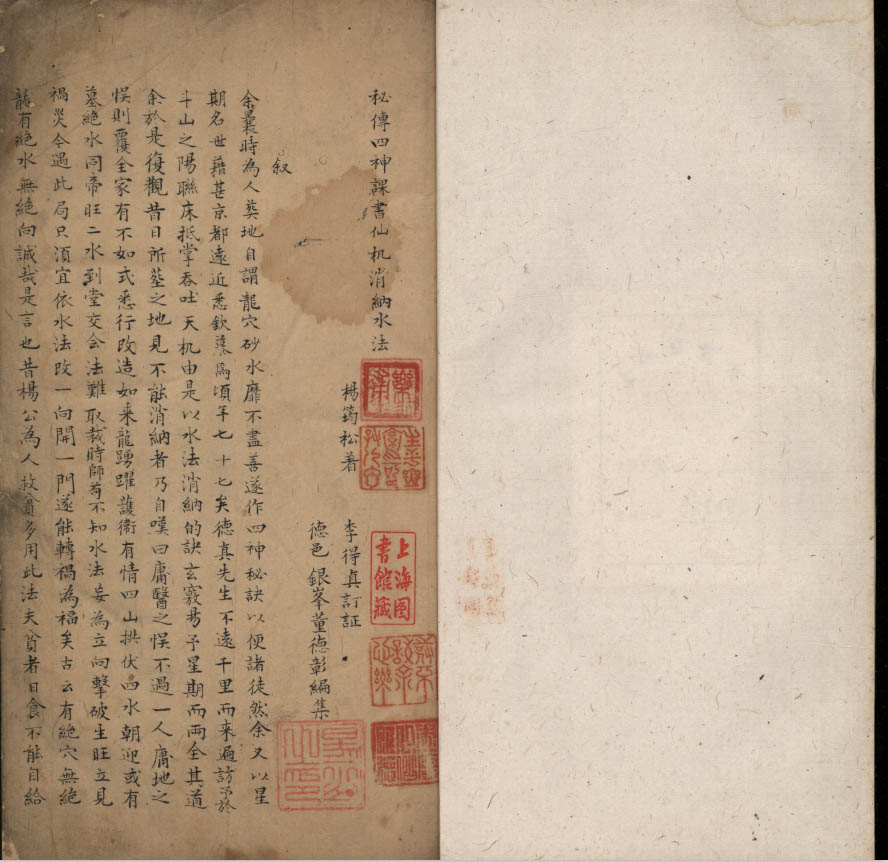 秘傳四神課書仙机消納水法
楊筠松著
李得真訂証
德邑銀峯董德彰編集
叙
余曩時為人葬地自謂龍穴砂水靡不盡善遂作四神秘訣以便諸徒然余又以星
期名世藉甚京都遠近悉欽慕焉頃年七十七矣德真先生不遠千里而来遍訪予於
斗山之陽聯床抵掌吞吐天机由是以水法消納的訣玄竅易予星期而両全其道
余於是復觀昔日所塟之地見不能消納者乃自嘆曰庸醫之悮不過一人庸地之
悮則覆全家有不如式悉行改造如来龍踴躍護衛有情四山拱伏四水朝迎或有
墓絶水同帝旺二水到堂交会法難取裁時師苟不知水法妄為立向擊破生旺立見
禍災今遇此局只湏宜依水法改一向開一門遂能轉禍為福矣古云有絶穴無絶
龍有絶水無絶向誠哉是言也昔楊公為人救貧多用此法夫貧者日食不能自給
上海图
書館藏